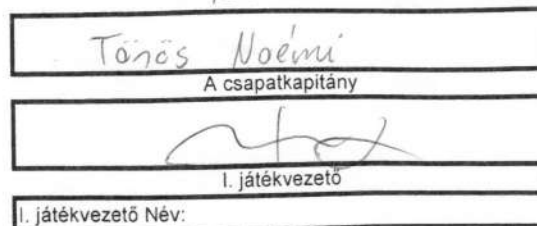 Tönös Noémi
A csapatkapitány
I. játékvezető
I. játékvezető Név: